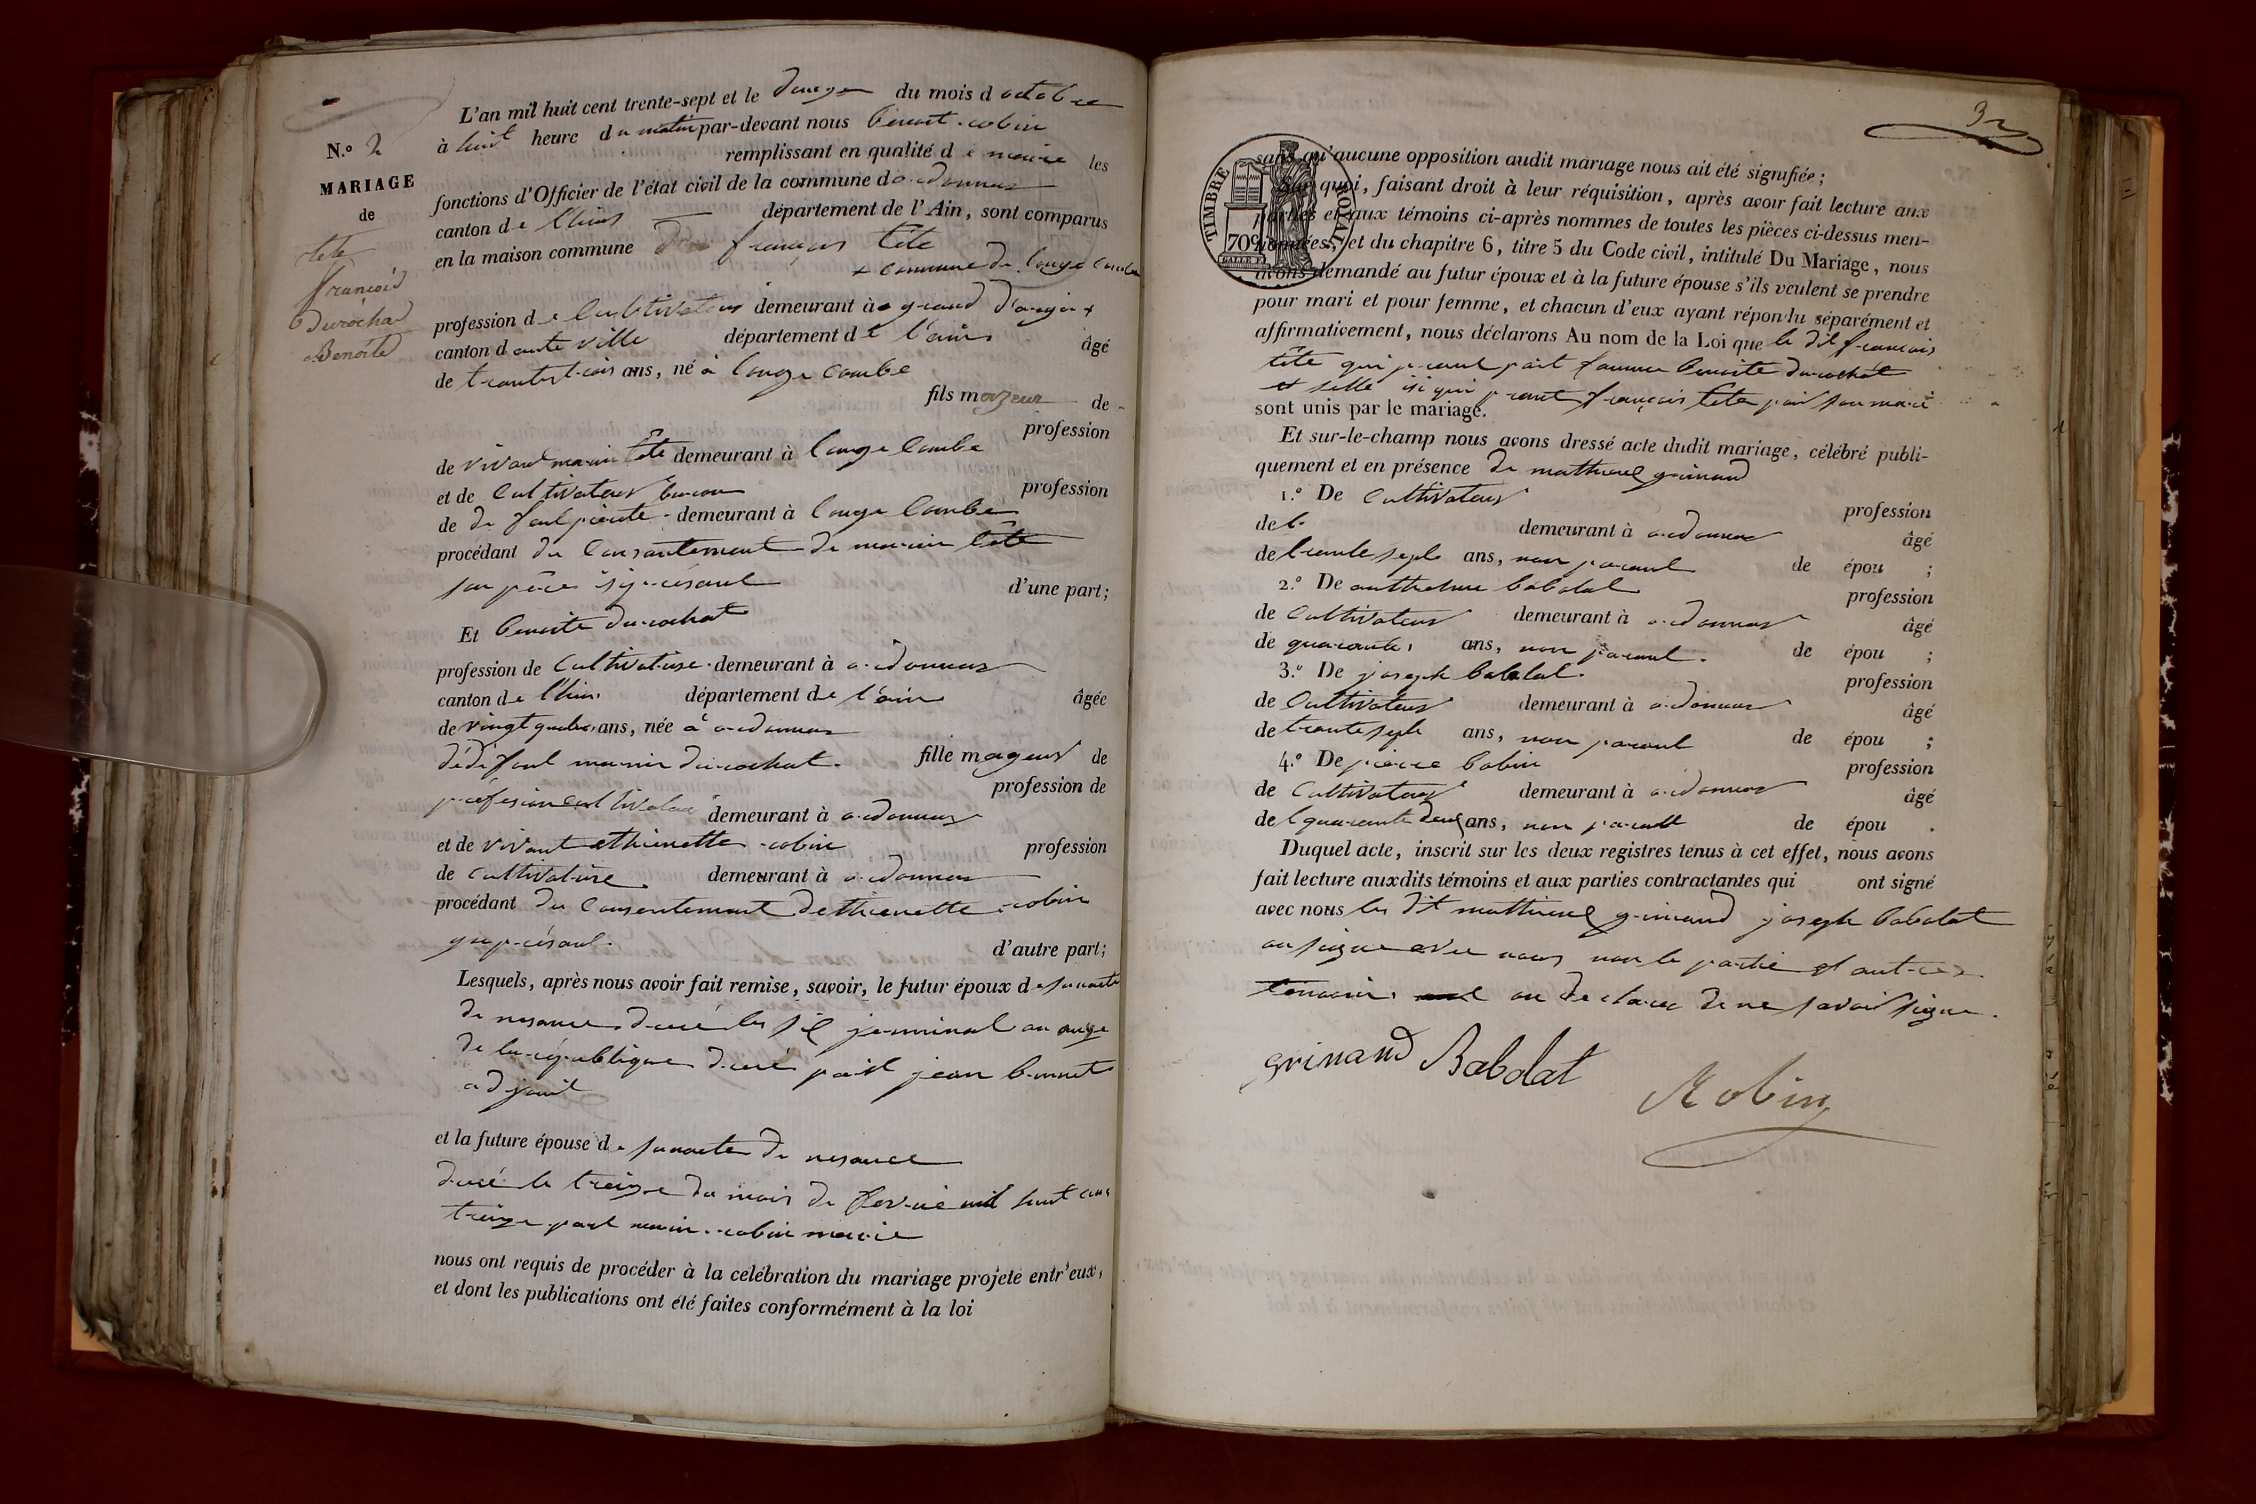 N.º 2
MARIAGE
de
tete
françois
Durochat
Benoîte
L'an mil huit cent trente-sept et le douze du mois d octobre
à huit heure du matin par-devant nous benoit robin
remplissant en qualité de maire les
fonctions d'Officier de l'état civil de la commune d ordonnas
canton de l'huis département de l'Ain, sont comparus
en la maison commune françois tête
+ commune de longe combe
profession de Cultivateur demeurant à grand d'ougin +
canton d aute ville département de l'ain âgé
de trantetrois ans, né à longe combe
fils mazeur de
profession
de vivant marin tête demeurant à longe combe
et de Cultivateur profession
de demeurant à longe Combe
procédant du consantement de marin tête
son père isi présant d'une part;
Et benoite durochat
profession de Cultivatrise demeurant à ordonnas
canton de l'huis département de l'ain âgée
de vingt quatre ans, née à ordonnas
dédéfunt marin durochat fille mageur de
profession de
profesion cultivateur demeurant à ordonnas
et de vivant ethienette robin profession
de cultivatrise demeurant à ordonnas
procédant du Consentement dethienette robin
présant d'autre part;
Lesquels, après nous avoir fait remise, savoir, le futur époux de son acte
de nesance dresé les sis jerminal an onze
de la république dresé part jean bonnet
adjoint
et la future épouse de son acte de nesance
dresé le treize du mois de fevrié mil huit cent
treize part marin robin maire
nous ont requis de procéder à la celébration du mariage projeté entr'eux,
et dont les publications ont été faites conformément à la loi
32
TIMBRE ROYAL
70
sans qu'aucune opposition audit mariage nous ait été signifiée;
Sur quoi, faisant droit à leur réquisition, après avoir fait lecture aux
parties et aux témoins ci-après nommes de toutes les pièces ci-dessus men-
tionnées, et du chapitre 6, titre 5 du Code civil, intitulé Du Mariage, nous
avons demandé au futur époux et à la future épouse s'ils veulent se prendre
pour mari et pour femme, et chacun d'eux ayant répondu séparément et
affirmativement, nous déclarons Au nom de la Loi que le dit françois
tête qui prent part famme benoite durochat
et sille isi qui prant françois tete pour son mari
sont unis par le mariage.
Et sur-le-champ nous avons dressé acte dudit mariage, célébré publi-
quement et en présence de mathieux grinand
1.º De Cultivateur profession
de demeurant à ordonnas âgé
de trante sept ans, non parant de épou ;
2.º De anthelme babolat profession
de Cultivateur demeurant à ordonnas âgé
de quarante ans, non parant de épou ;
3.º De joseph babolat profession
de Cultivateur demeurant à ordonnas âgé
de trante sept ans, non parant de épou ;
4.º De pierre robin profession
de Cultivateur demeurant à ordonnas âgé
de quarante deux ans, non parant de épou .
Duquel acte, inscrit sur les deux registres tenus à cet effet, nous avons
fait lecture auxdits témoins et aux parties contractantes qui ont signé
avec nous les dit mathieux grinand joseph babolat
on signe avec nous non le partie et autres
témoin on declarer de ne savoir signe.
grinand Babolat
Robin